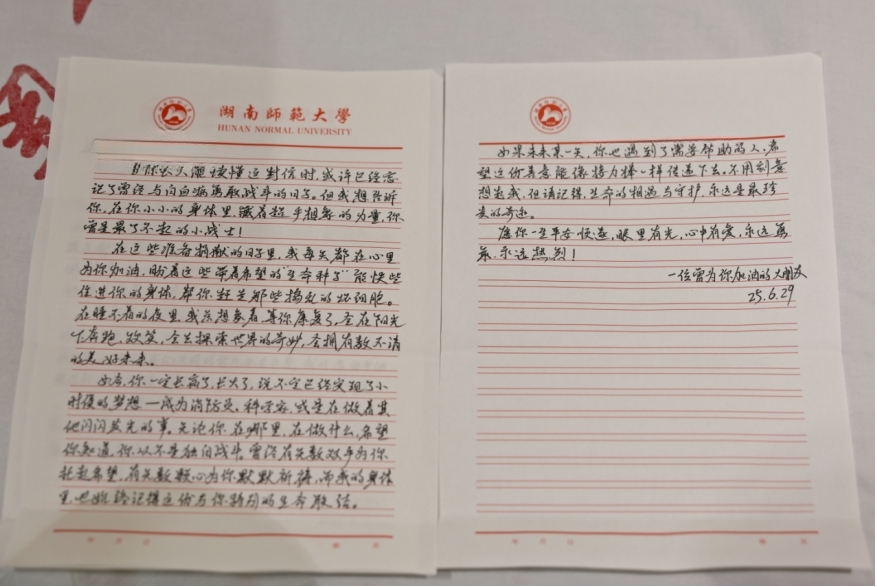 湖南師範大學
HUNAN NORMAL UNIVERSITY
当你长大能读懂这封信时,或许已经忘
记了曾经与白血病勇敢战斗的日子。但我想告诉
你,在你小小的身体里,藏着超乎想象的力量,你
曾是最了不起的小战士!
在这些准备捐献的日子里,我每天都在心里
为你加油,盼着这些带着希望的“生命种子”能快些
住进你的身体,帮你赶走那些捣乱的坏细胞。
在睡不着的夜里,我总想象着,等你康复了,会在阳光
下奔跑、欢笑,会去探索世界的奇妙,会拥有数不清
的美好未来。
如今,你一定长高了,长大了,说不定已经实现了小
时候的梦想—成为消防员、科学家,或是在做着其
他闪闪发光的事。无论你在哪里,在做什么,希望
你知道,你从不是独自战斗。曾经有无数双手为你
托起希望,有无数颗心为你默默祈祷,而我的身体
里,也始终记得这份与你特别的生命联结。
如果未来某一天,你也遇到了需要帮助的人,希
望这份善意能像接力棒一样传递下去。不用刻意
想起我,但请记得,生命的相遇与守护,永远是最珍
贵的奇迹。
愿你一生平安快乐,眼里有光,心中有爱,永远勇
敢,永远热烈!
一位曾为你加油的大朋友
25.6.29